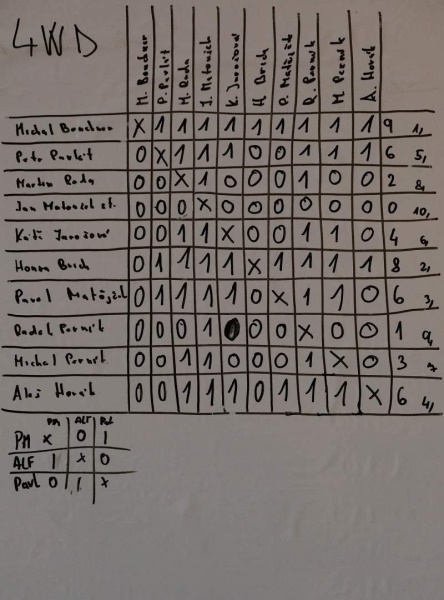 4WD
M. Bouchner P. Pavlát M. Rada J. Matonick K. Javořová H. Brich P. Matějíč R. Pornik M Pecnik A. Horák
X 1 1 1 1 1 1 1 1 1 9 1,
0 X 1 1 1 0 0 1 1 1 6 5,
Martin Rada 0 0 X 1 0 0 0 1 0 0 2 8,
Jan st. 0 0 0 X 0 0 0 0 0 0 0 10,
0 0 1 1 X 0 0 1 1 0 4 6,
Honza 0 1 1 1 1 X 1 1 1 1 8 2,
Pavel 0 1 1 1 1 0 X 1 1 0 6 3,
0 0 0 1 0 0 0 X 0 0 1 9,
Michal 0 0 1 1 0 0 0 1 X 0 3 7
Aleš Horák 0 0 1 1 1 0 1 1 1 X 6 4,
PM ALF Pavl
PM X 0 1
ALF 1 X 0
Pavl 0 1 X